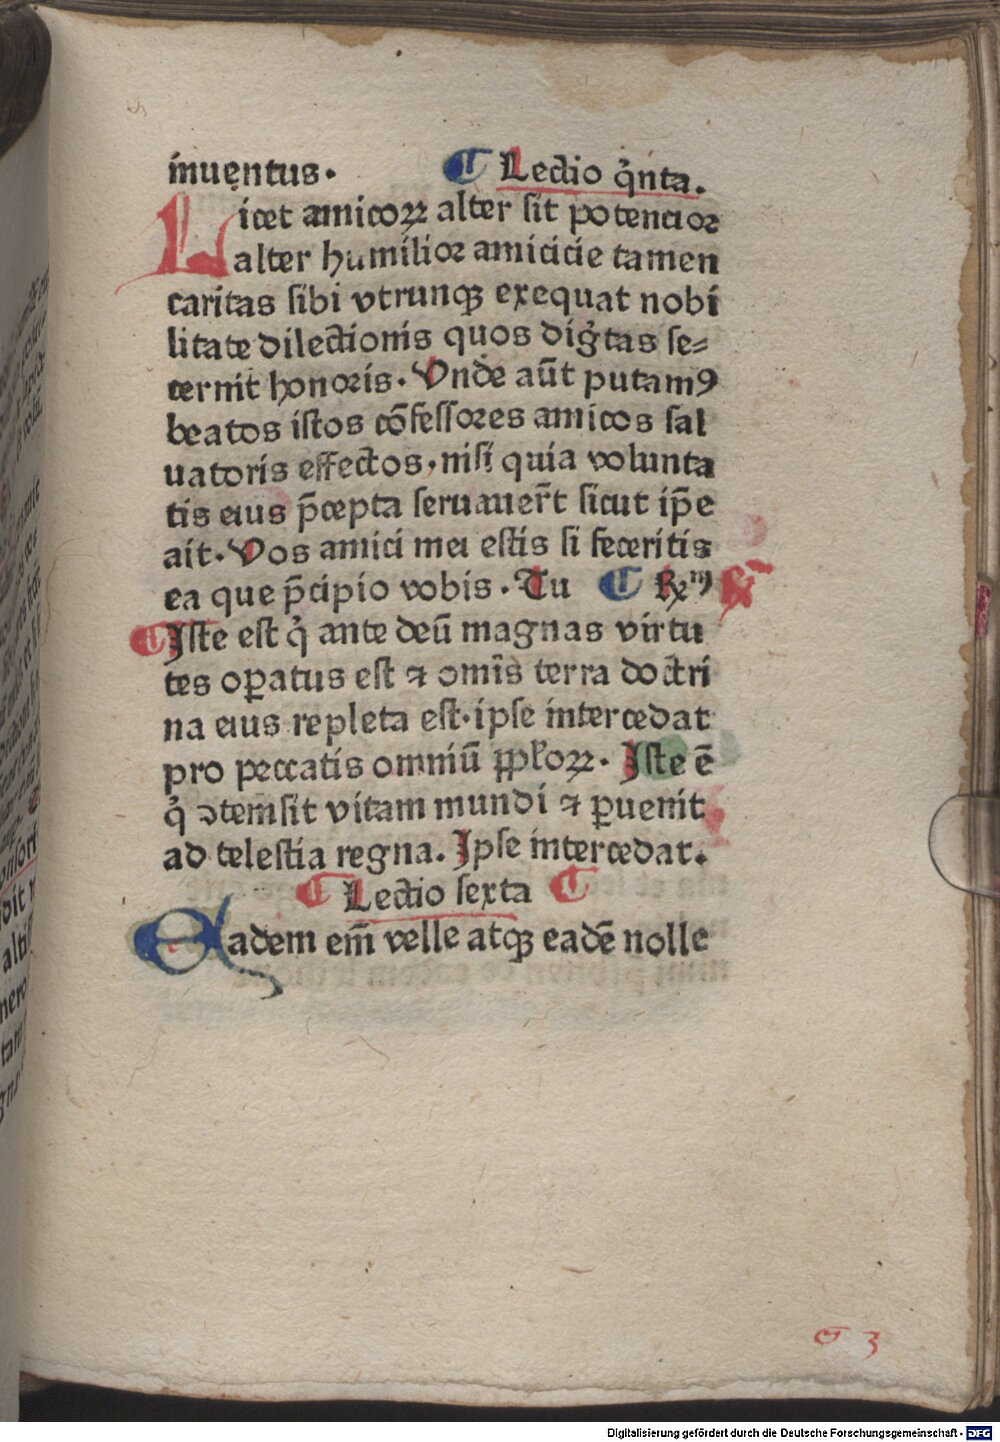 inuentus. ¶ Lectio qͥnta.
Licet amicoꝝ alter sit potencior
alter humilior amicicie tamen
caritas sibi vtrunqꝫ exequat nobi
litate dilectionis quos digͥtas se⸗
cernit honoris. Vnde aūt putamꝰ
beatos istos cōfessores amicos sal
uatoris effectos, nisi quia volunta
tis eius p̄cepta seruauer̄t sicut ip̄e
ait. Vos amici mei estis si feceritis
ea que p̄cipio vobis. Tu ¶
¶ Iste est qͥ ante deū magnas virtu
tes oꝑatus est ⁊ om̄is terra doctri
na eius repleta est. ipse intercedat
pro peccatis omniū ppl'oꝝ. Iste ē
qͥ ↄtemsit vitam mundi ⁊ ꝑuenit
ad celestia regna. Ipse intercedat.
¶ Lectio sexta ¶
Eadem em̄ velle atqꝫ eadē nolle
Digitalisierung gefördert durch die Deutsche Forschungsgemeinschaft - DFG